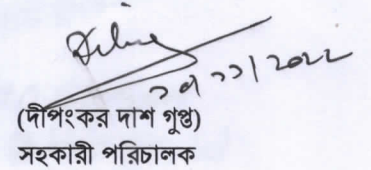 ২৭/১১/২০২২
(দীপংকর দাশ গুপ্ত)
সহকারী পরিচালক